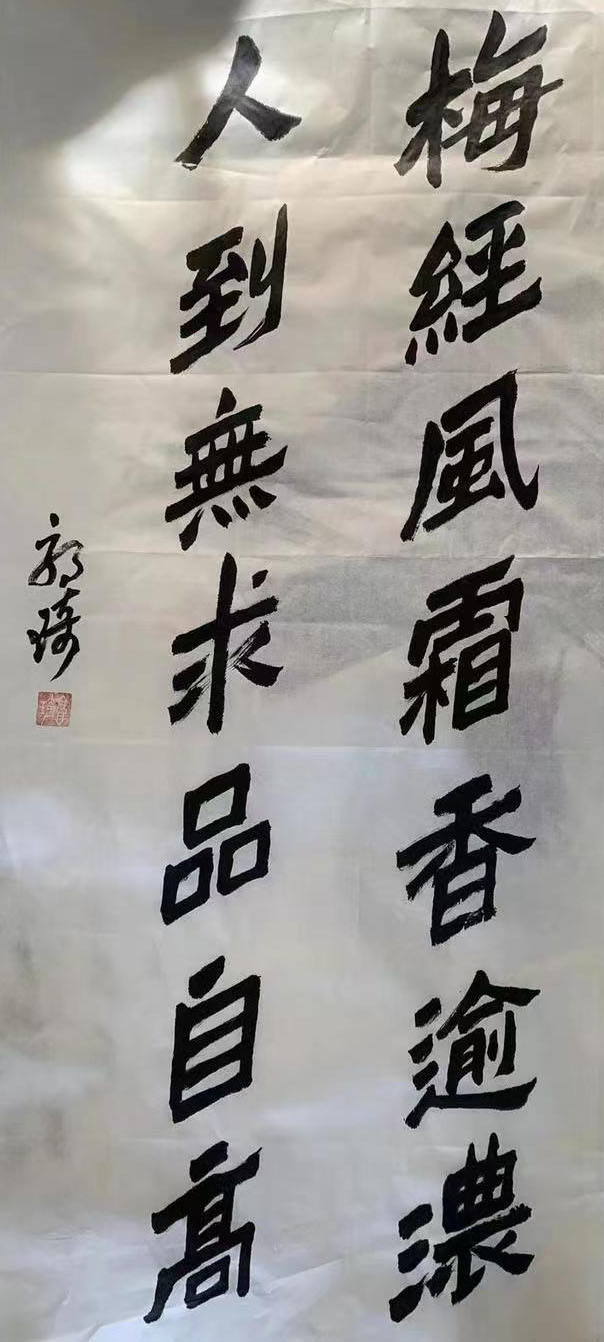 梅經風霜香逾濃
人到無求品自高
郭琦